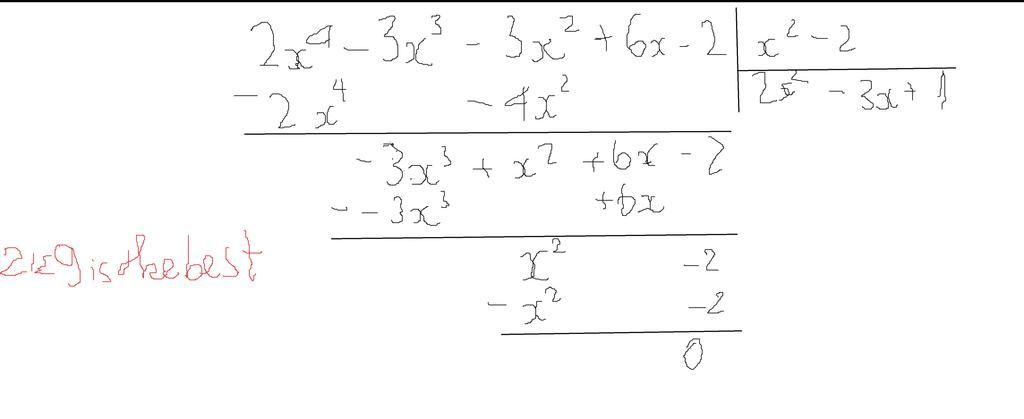 2x⁴ - 3x³ - 3x² + 6x - 2 | x² - 2
- 2x⁴ - 4x² | 2x² - 3x + 1
- 3x³ + x² + 6x - 2
- - 3x³ + 6x
x² - 2
- x² - 2
0
is the best